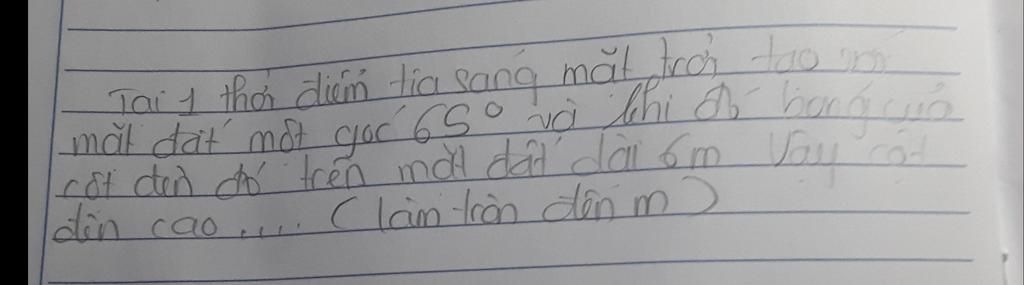 Tại 1 thời điểm tia sáng mặt trời tạo với
mặt đất một góc 65° và khi đó bóng của
cột đèn đó trên mặt đất dài 6m Vậy cột
đèn cao .... (làm tròn đến m)